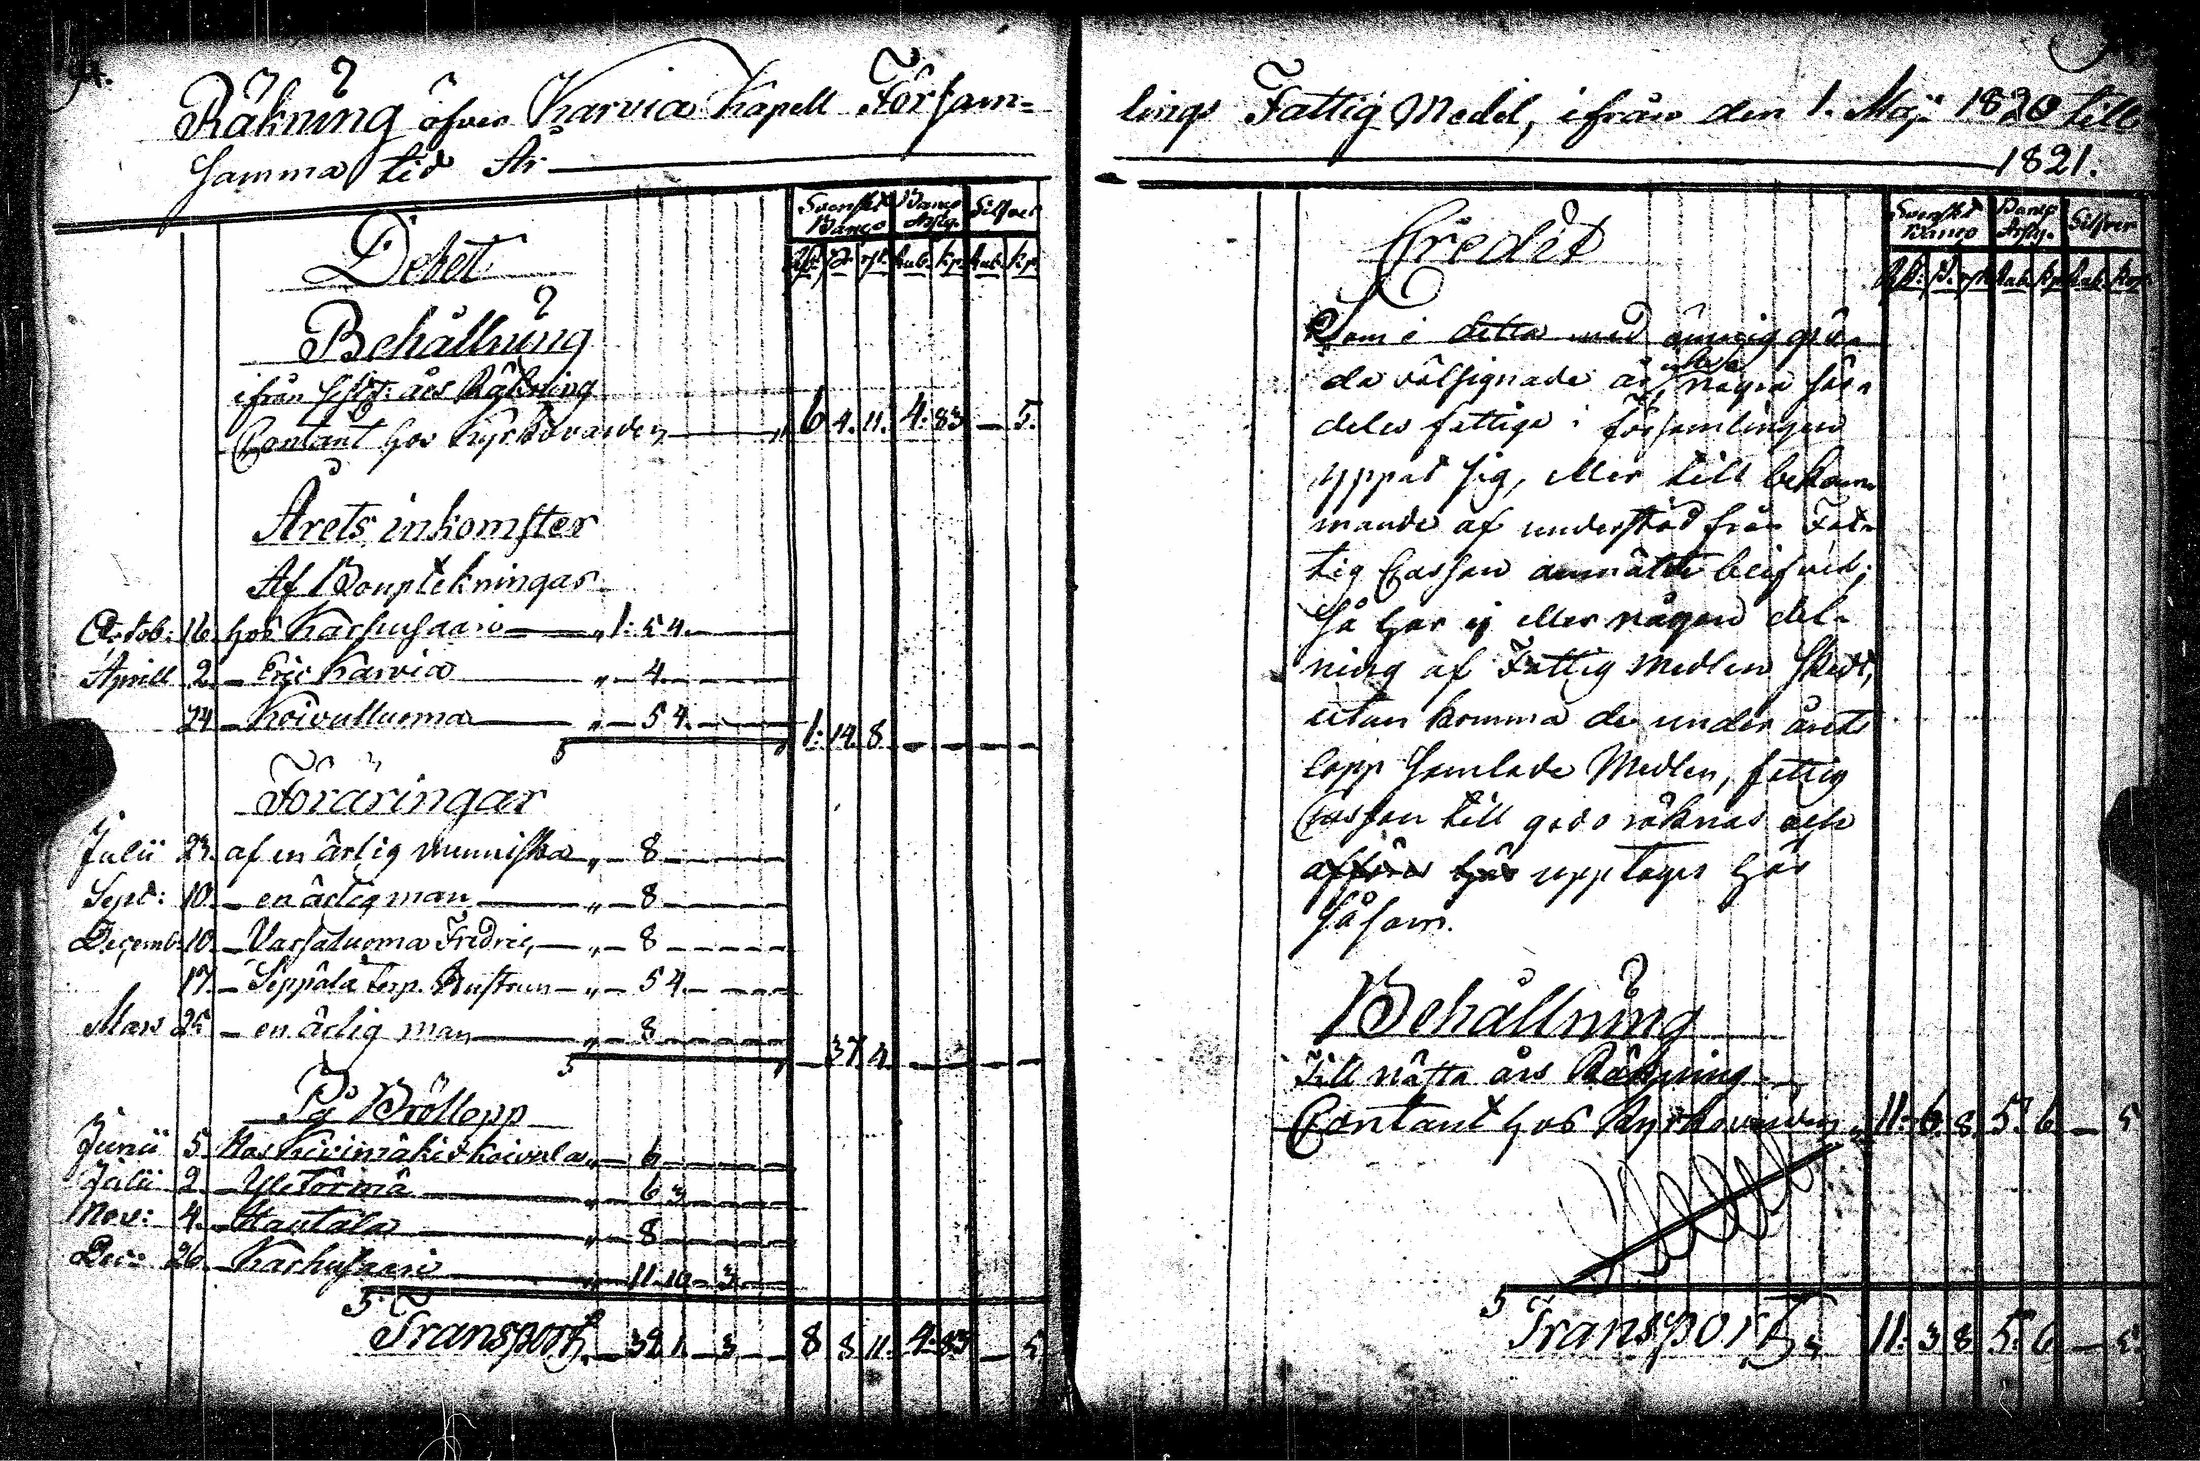 Räkning öfver Karvia Kapell Församlings Fattig Medel, ifrån den 1. Maji 1820 till
samma tid År 1821.
Debet
Svenskt Banco
Banco Assig.
Silfver
Rd. s. rst. Rub. kp. Rub. kp.
Behållning
ifrån sistl: års Räkning
Contant hos Kyrkovärden 6. 4. 11. 4. 83. — 5.
Årets inkomster
Af Bouptekningar
Octob: 16. hos Karhusaari „ 1: 5 4.
Aprill 2. — Eric Karvia „ — 4.
24. — Koivulluoma „ — 5 4.
S 1: 14. 8. — — — —
Föräringar
Julii 23. af en ärlig menniska „ — 8
Sept: 10. — en ärlig man „ — 8
Decemb. 10. — Varsaluoma Fredric „ — 8
17. — Seppälä torp. Gustava „ — 5 4.
Mars 25. — en ärlig man „ — 8
S — 37. 4. — — — —
På Bröllopp
Junii 5. Kivimäki Koivula „ — 6
Julii 2. — Yletörmä „ — 6 3
Nov: 4. — Rautala „ — 8
Dec: 26. — Karhusaari „ — 11. 10 — 3
S:
Transport — 32 1. — 3 8 8 11. 4. 83 — 5
Credit
Svenskt Banco
Banco Assig.
Silfver
Rd. s. rst. Rub. kp. Rub. kop.
Som i detta med ämnig grö-
da välsignade år några sär-
deles fattige i församlingen
yppat sig, eller till bekom-
mande af understöd från Fat-
tig Cassan anmälte blifvit;
så har ej eller någon del-
ning af Fattig Medlen skedt,
utan komma de under årets
lopp samlade Medlen, fattig
Cassan till godo räknas och
upptages här
såsom.
Behållning
Till nästa års Räkning
Contant hos Kyrkovärden „ 11: 6. 8. 5: 6 — 5
S
Transport S 11: 3 8 5: 6 — 5.